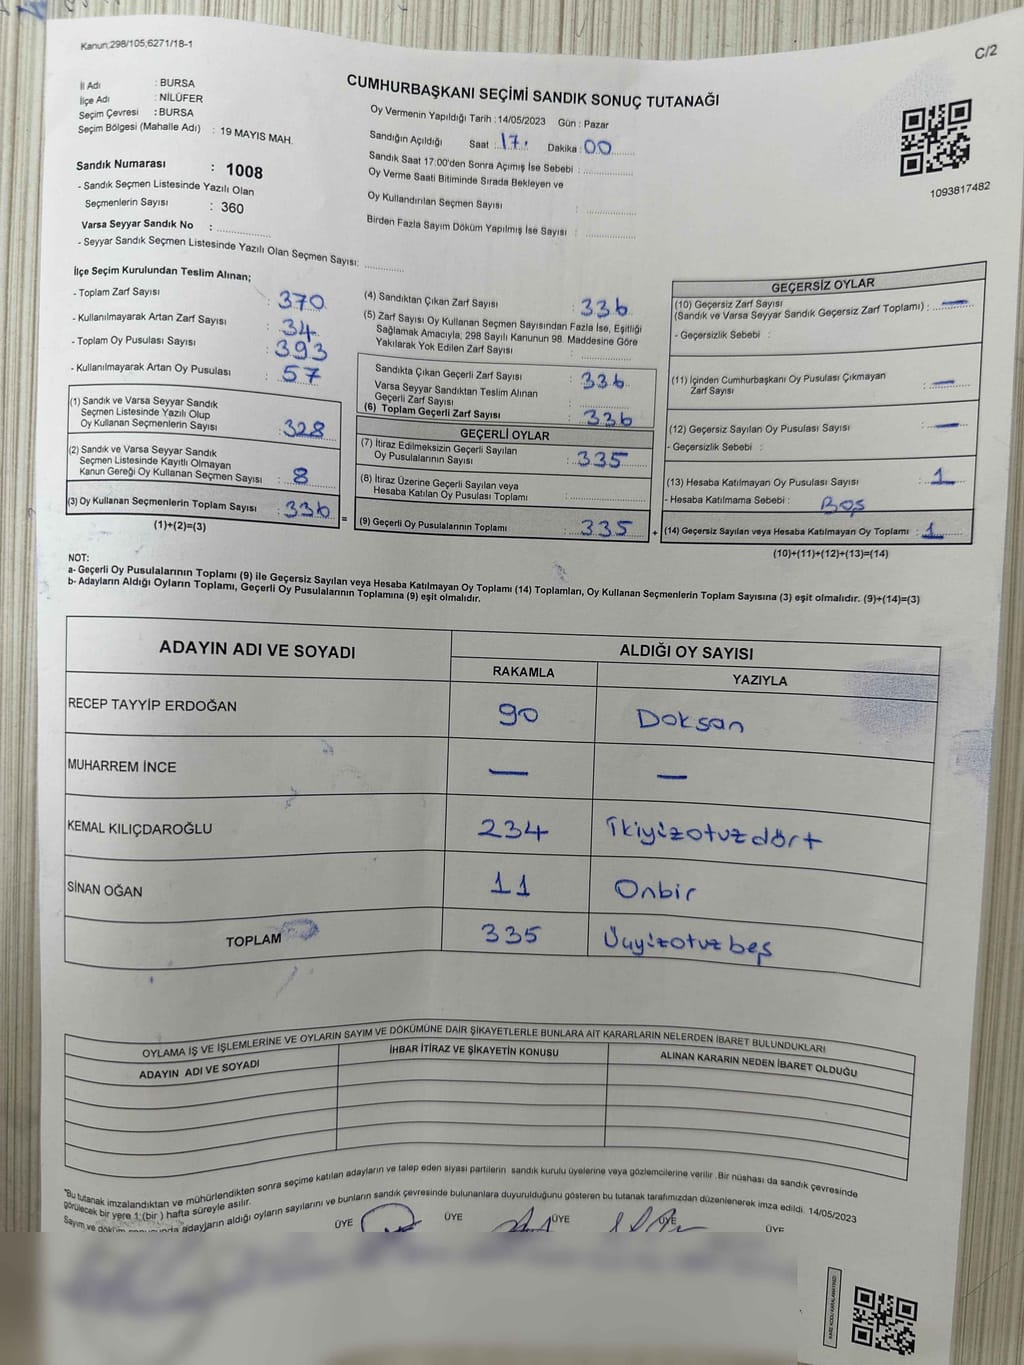 Kanun;298/105;6271/18-1
C/2
İl Adı : BURSA
İlçe Adı : NİLÜFER
Seçim Çevresi : BURSA
Seçim Bölgesi (Mahalle Adı) : 19 MAYIS MAH.
Sandık Numarası : 1008
- Sandık Seçmen Listesinde Yazılı Olan
Seçmenlerin Sayısı : 360
Varsa Seyyar Sandık No :
- Seyyar Sandık Seçmen Listesinde Yazılı Olan Seçmen Sayısı:
CUMHURBAŞKANI SEÇİMİ SANDIK SONUÇ TUTANAĞI
Oy Vermenin Yapıldığı Tarih : 14/05/2023 Gün : Pazar
Sandığın Açıldığı Saat : 17. Dakika : 00
Sandık Saat 17:00'den Sonra Açımış İse Sebebi :
Oy Verme Saati Bitiminde Sırada Bekleyen ve
Oy Kullandırılan Seçmen Sayısı :
Birden Fazla Sayım Döküm Yapılmış İse Sayısı :
1093817482
İlçe Seçim Kurulundan Teslim Alınan;
- Toplam Zarf Sayısı : 370
- Kullanılmayarak Artan Zarf Sayısı : 34
- Toplam Oy Pusulası Sayısı : 393
- Kullanılmayarak Artan Oy Pusulası : 57
(1) Sandık ve Varsa Seyyar Sandık
Seçmen Listesinde Yazılı Olup
Oy Kullanan Seçmenlerin Sayısı : 328
(2) Sandık ve Varsa Seyyar Sandık
Seçmen Listesinde Kayıtlı Olmayan
Kanun Gereği Oy Kullanan Seçmen Sayısı : 8
(3) Oy Kullanan Seçmenlerin Toplam Sayısı : 336
(1)+(2)=(3)
(4) Sandıktan Çıkan Zarf Sayısı : 336
(5) Zarf Sayısı Oy Kullanan Seçmen Sayısından Fazla İse, Eşitliği
Sağlamak Amacıyla, 298 Sayılı Kanunun 98. Maddesine Göre
Yakılarak Yok Edilen Zarf Sayısı :
Sandıkta Çıkan Geçerli Zarf Sayısı : 336
Varsa Seyyar Sandıktan Teslim Alınan
Geçerli Zarf Sayısı :
(6) Toplam Geçerli Zarf Sayısı : 336
GEÇERLİ OYLAR
(7) İtiraz Edilmeksizin Geçerli Sayılan
Oy Pusulalarının Sayısı : 335
(8) İtiraz Üzerine Geçerli Sayılan veya
Hesaba Katılan Oy Pusulası Toplamı :
= (9) Geçerli Oy Pusulalarının Toplamı : 335 +
GEÇERSİZ OYLAR
(10) Geçersiz Zarf Sayısı
(Sandık ve Varsa Seyyar Sandık Geçersiz Zarf Toplamı) : —
- Geçersizlik Sebebi :
(11) İçinden Cumhurbaşkanı Oy Pusulası Çıkmayan
Zarf Sayısı : —
(12) Geçersiz Sayılan Oy Pusulası Sayısı : —
- Geçersizlik Sebebi :
(13) Hesaba Katılmayan Oy Pusulası Sayısı : 1
- Hesaba Katılmama Sebebi : Boş
(14) Geçersiz Sayılan veya Hesaba Katılmayan Oy Toplamı : 1
(10)+(11)+(12)+(13)=(14)
NOT:
a- Geçerli Oy Pusulalarının Toplamı (9) ile Geçersiz Sayılan veya Hesaba Katılmayan Oy Toplamı (14) Toplamları, Oy Kullanan Seçmenlerin Toplam Sayısına (3) eşit olmalıdır. (9)+(14)=(3)
b- Adayların Aldığı Oyların Toplamı, Geçerli Oy Pusulalarının Toplamına (9) eşit olmalıdır.
ADAYIN ADI VE SOYADI
ALDIĞI OY SAYISI
RAKAMLA YAZIYLA
RECEP TAYYİP ERDOĞAN 90 Doksan
MUHARREM İNCE — —
KEMAL KILIÇDAROĞLU 234 İkiyüzotuzdört
SİNAN OĞAN 11 Onbir
TOPLAM 335 Üçyüzotuzbeş
OYLAMA İŞ VE İŞLEMLERİNE VE OYLARIN SAYIM VE DÖKÜMÜNE DAİR ŞİKAYETLERLE BUNLARA AİT KARARLARIN NELERDEN İBARET BULUNDUKLARI
ADAYIN ADI VE SOYADI İHBAR İTİRAZ VE ŞİKAYETİN KONUSU ALINAN KARARIN NEDEN İBARET OLDUĞU
"Bu tutanak imzalandıktan ve mühürlendikten sonra seçime katılan adayların ve talep eden siyasi partilerin sandık kurulu üyelerine veya gözlemcilerine verilir. Bir nüshası da sandık çevresinde
görülecek bir yere 1 (bir) hafta süreyle asılır.
Sayım ve döküm sonucunda adayların aldığı oyların sayılarını ve bunların sandık çevresinde bulunanlara duyurulduğunu gösteren bu tutanak tarafımızdan düzenlenerek imza edildi. 14/05/2023
ÜYE ÜYE ÜYE ÜYE ÜYE